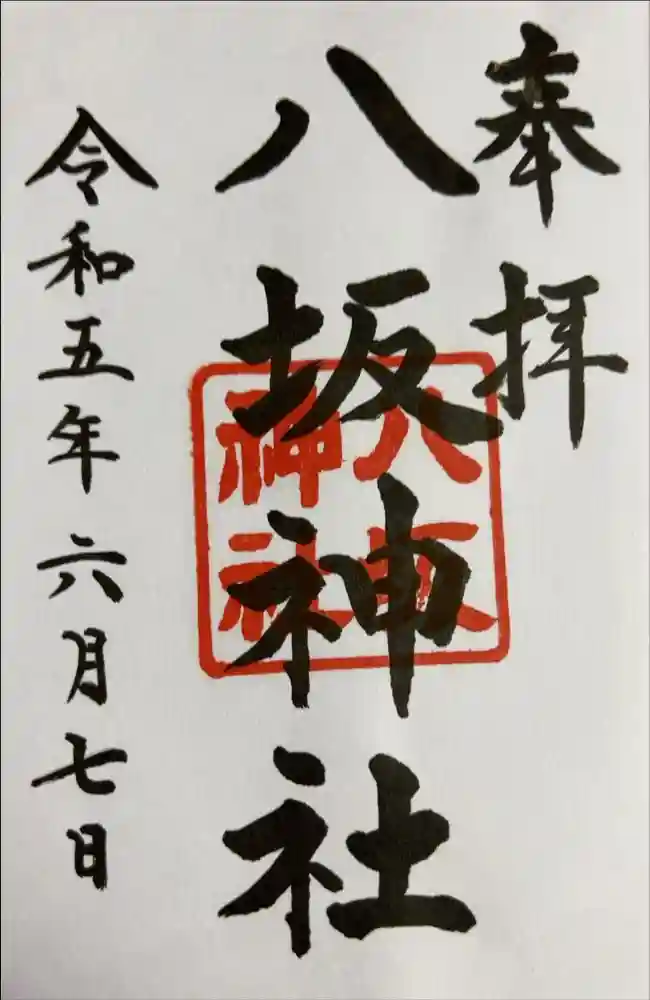 奉拝
八坂神社
八坂
神社
令和五年六月七日